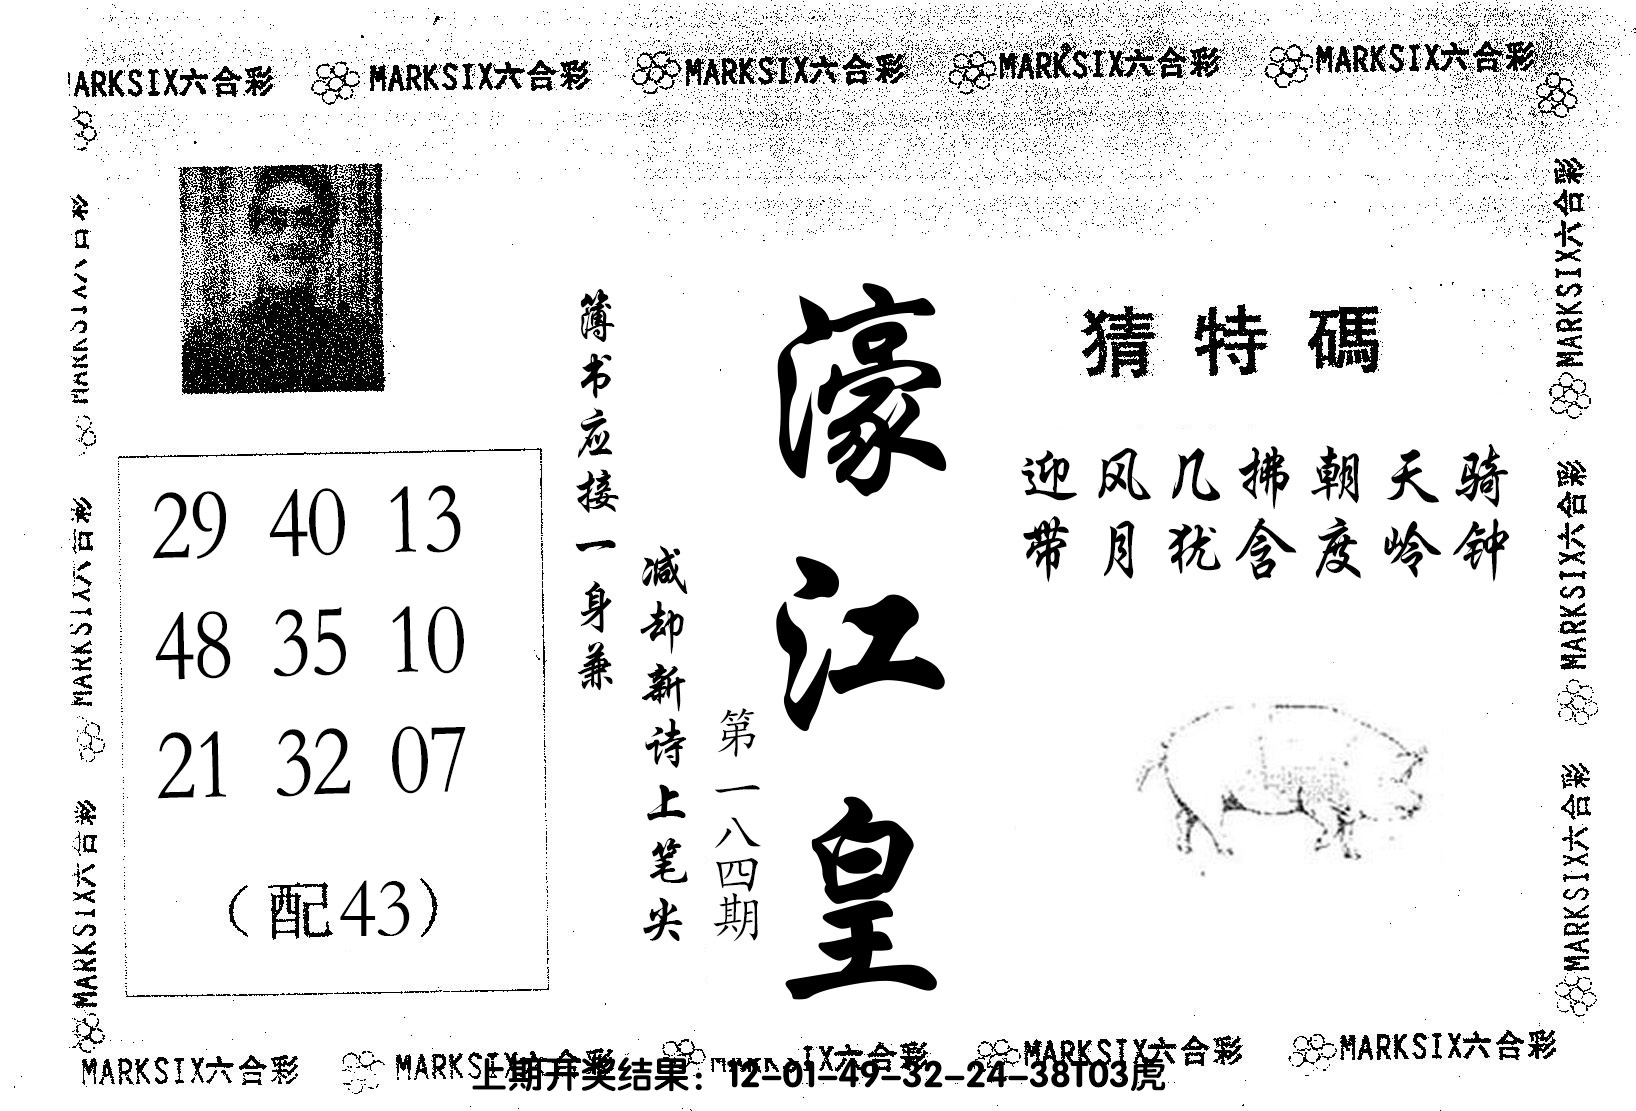 MARKSIX六合彩 MARKSIX六合彩 MARKSIX六合彩 MARKSIX六合彩
猜特碼
迎风几拂朝天骑
带月犹含度岭钟
濠江皇
第一八四期
簿书应接一身兼
减却新诗上笔尖
29 40 13
48 35 10
21 32 07
（配43）
MARKSIX六合彩
MARKSIX六合彩
MARKSIX六合彩
MARKSIX六合彩
MARKSIX六合彩
MARKSIX六合彩 MARKSIX六合彩 MARKSIX六合彩 MARKSIX六合彩
上期开奖结果：12-01-49-32-24-38T03虎